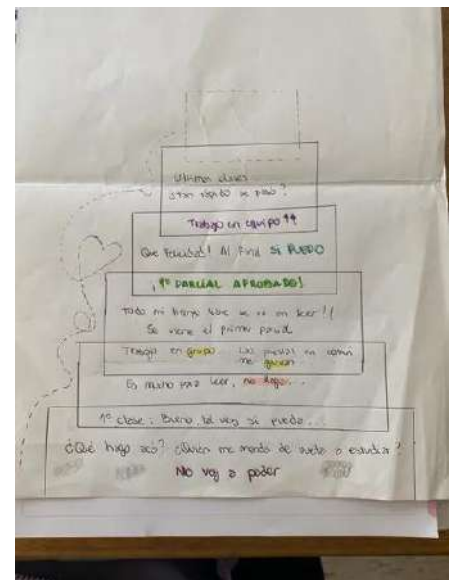 Últimas clases...
¿Tan rápido se pasó?
Trabajo en equipo
Que felicidad! Al final SI PUEDO
¡1º PARCIAL APROBADO!
Todo mi tiempo libre se va en leer!!
Se viene el primer parcial
Trabajo en grupo. Las puestas en común me guían...
Es mucho para leer, no llego...
1º clase: Bueno, tal vez si puedo...
¿Qué hago acá? ¿Quién me mandó de nuevo a estudiar?
No voy a poder